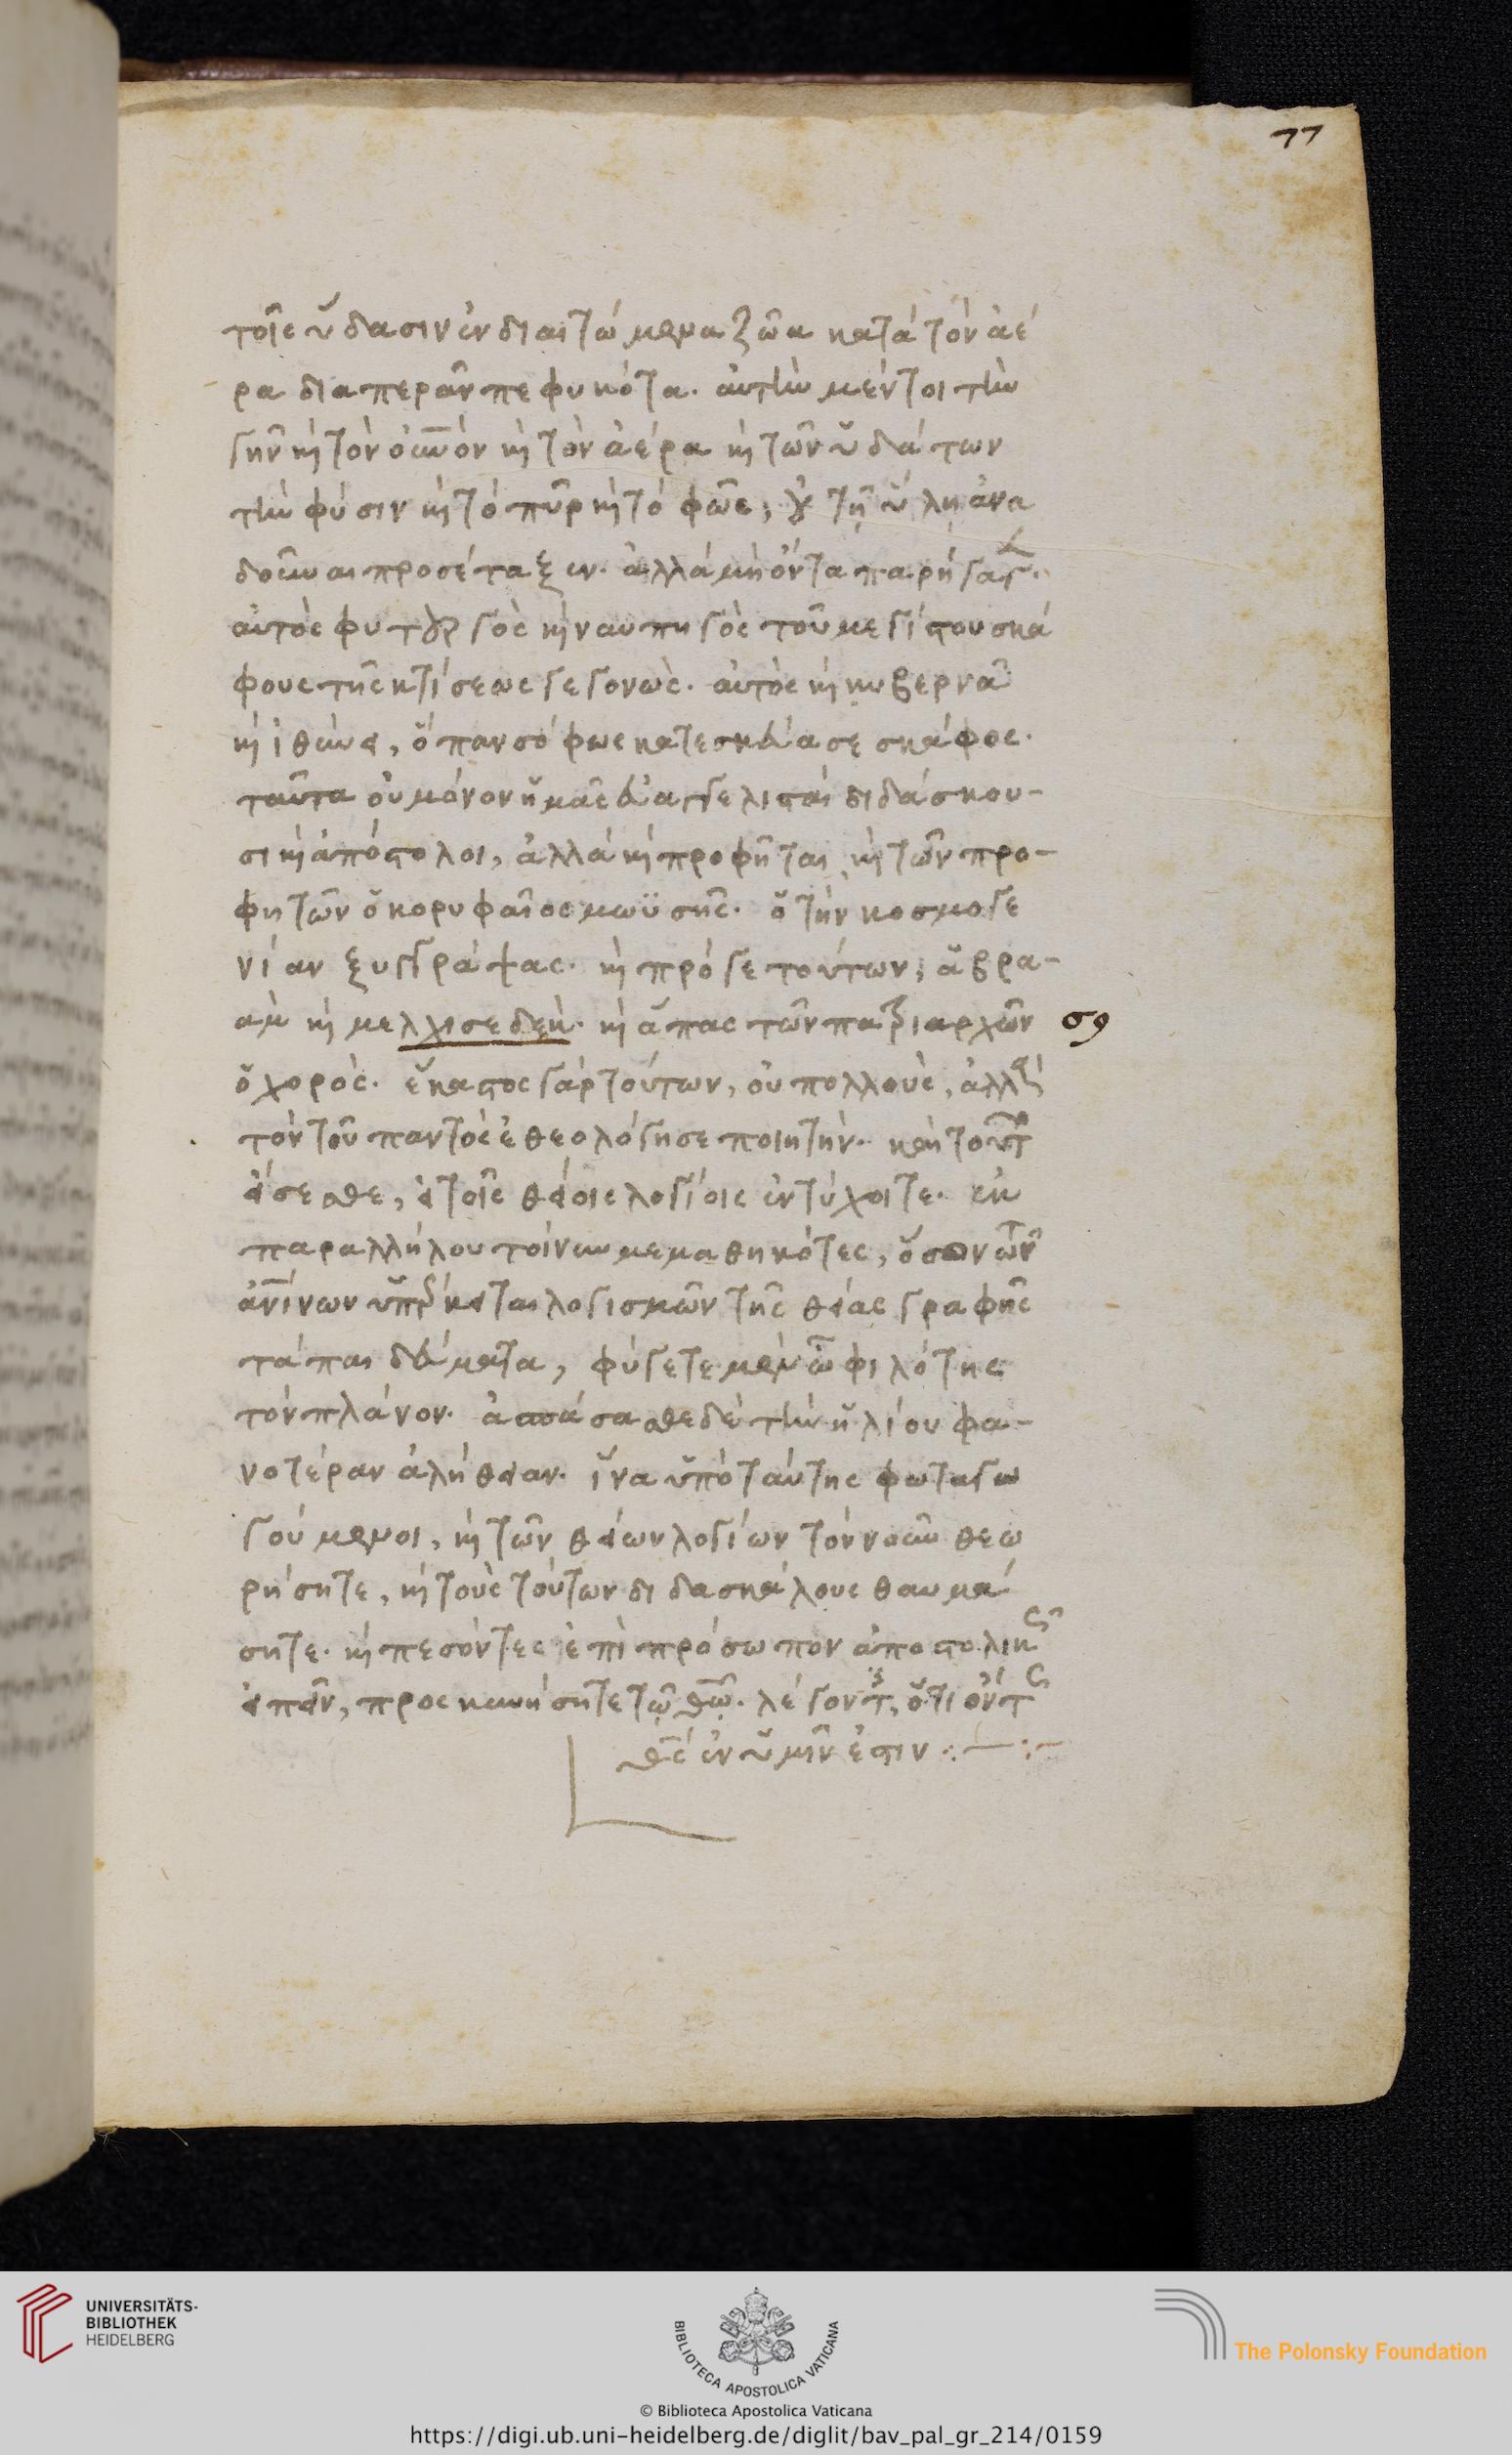 77
τοῖς ὕδασιν ἐνδιαιτώμενα ζῶα κατὰ τὸν ἀέ
ρα διαπερᾶν πεφυκότα. αὐτὴν μέντοι τὴν
γῆν κ τὸν οὐνὸν κ τὸν ἀέρα κ τῶν ὑδάτων
τὴν φύσιν κ τὸ πῦρ κ τὸ φῶς, τῆ ὕλη ἀνα
δοῦναι προσέταξεν. ἀλλὰ μὴ ὄντα παρήγαγ.
αὐτὸς φυτουργὸς κ ναυπηγὸς τοῦ μεγίστου σκά
φους τῆς κτίσεως γεγονὼς. αὐτὸς κ κυβερνᾶ
κ ἰθύνει, ὃ πανσόφως κατεσκεύασε σκάφος.
ταῦτα οὐ μόνον ἡμᾶς εὐαγγελισταὶ διδάσκου-
σι κ ἀπόστολοι, ἀλλὰ κ προφῆται κ τῶν προ-
φητῶν ὁ κορυφαῖος μωϋσῆς. ὁ τὴν κοσμογε
νίαν ξυγγράψας. κ πρό γε τούτων, ἁβρα-
ὰμ κ μελχισεδὲκ. κ ἅπας τῶν πατριαρχῶν
σρ
ὁ χορὸς. ἕκαστος γὰρ τούτων, οὐ πολλοὺς, ἀλλὰ
τὸν τοῦ παντὸς ἐθεολόγησε ποιητήν. καὶ τοῦτο
εἴσεσθε, εἰ τοῖς θείοις λογίοις ἐντύχοιτε. ἐκ
παραλλήλου τοίνυν μεμαθηκότες, ὅσον τῶν
ἀνίνων ὑπέρκειται λογισμῶν τῆς θείας γραφῆς
τὰ παιδεύματα, φύγετε μὲν ὦ φιλότης
τὸν πλάνον. ἀσπάσασθε δὲ τὴν ἡλίου φα-
νοτέραν ἀλήθειαν. ἵνα ὑπὸ ταύτης φωταγω
γούμενοι, κ τῶν θείων λογίων τὸν νοῦν θεω
ρήσητε, κ τοὺς τούτων διδασκάλους θαυμά
σητε. κ πεσόντες ἐπὶ πρόσωπον ἀποστολικῶς
εἰπεῖν, προσκυνήσητε τῶ θῶ. λέγοντες, ὅτι ὄντως
θς ἐν ὑμῖν ἐστιν :—:—
UNIVERSITÄTS-
BIBLIOTHEK
HEIDELBERG
BIBLIOTECA APOSTOLICA VATICANA
The Polonsky Foundation
© Biblioteca Apostolica Vaticana
https://digi.ub.uni-heidelberg.de/diglit/bav_pal_gr_214/0159